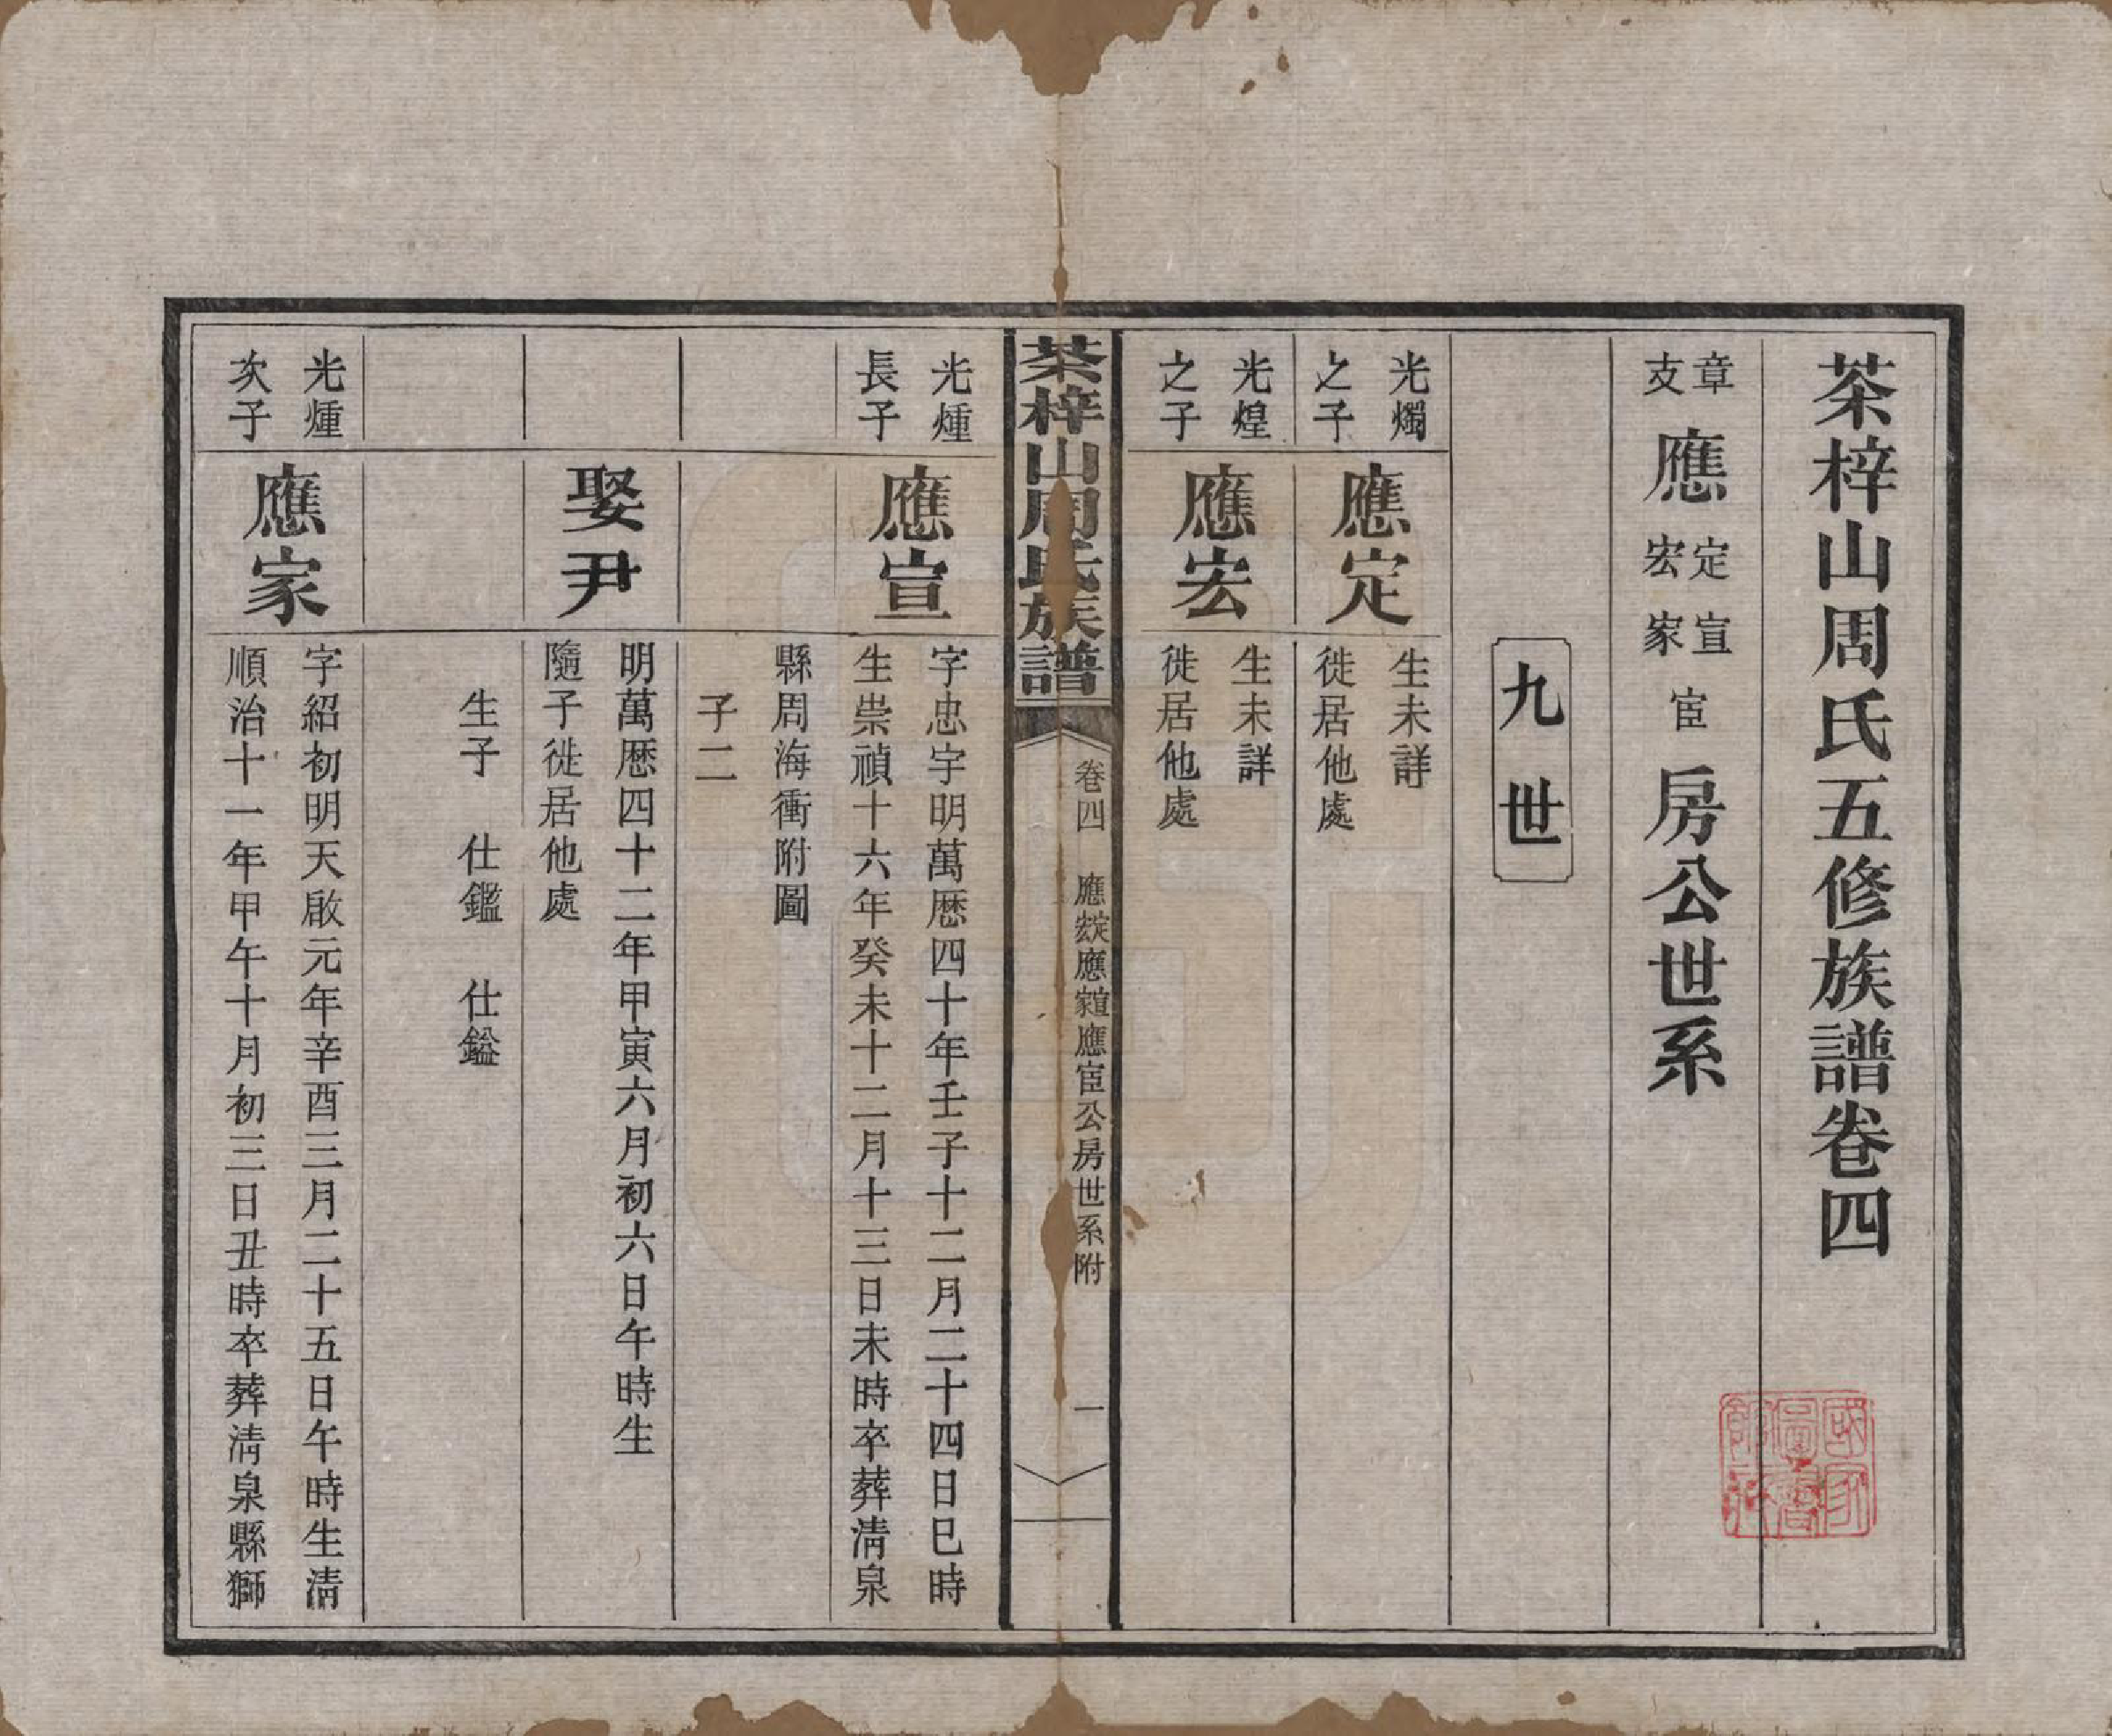 茶梓山周氏五修族譜卷四
章支 應 定宣宏家 宦 房公世系
九世
光燭之子
應定
生未詳
徙居他處
光煌之子
應宏
生未詳
徙居他處
茶梓山周氏族譜
卷四 應定宏應宣家應宦公房世系附 一
光煄長子
應宣
字忠宇明萬歷四十年壬子十二月二十四日巳時
生崇禎十六年癸未十二月十三日未時卒葬清泉
縣周海衝附圖
子二
娶尹
明萬歷四十二年甲寅六月初六日午時生
隨子徙居他處
生子 仕鑑 仕鎰
光煄次子
應家
字紹初明天啟元年辛酉三月二十五日午時生清
順治十一年甲午十月初三日丑時卒葬清泉縣獅